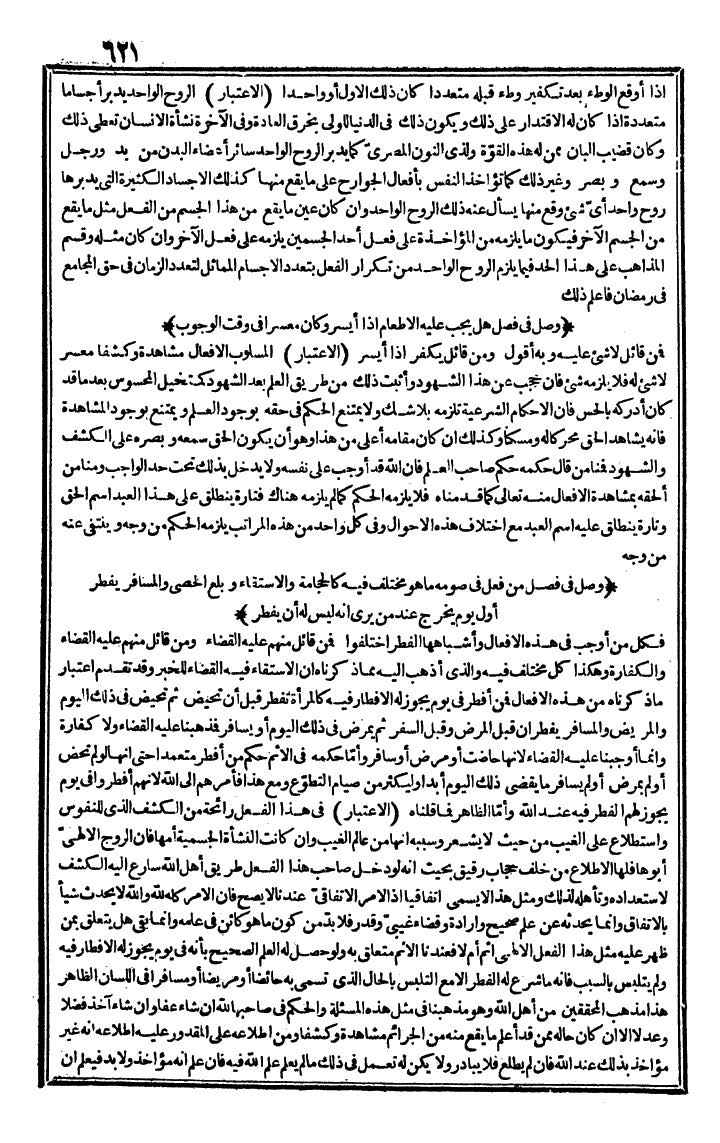 ٦٢١
اذا أوقع الوطء بعد تكفير وطء قبله متعددا كان ذلك الاول أو واحدا (الاعتبار) الروح الواحد يدبر أجساما
متعددة اذا كان له الاقتدار على ذلك ويكون ذلك فى الدنيا للولى بخرق العادة وفى الآخرة نشأة الانسان تعطى ذلك
وكان قضيب البان ممن له هذه القوّة ولذى النون المصرىّ كما يدبر الروح الواحد سائر أعضاء البدن من يد ورجل
وسمع وبصر وغير ذلك كما تؤاخذ النفس بأفعال الجوارح على ما يقع منها كذلك الاجساد الكثيرة التى يدبرها
روح واحد أىّ شئ وقع منها يسأل عنه ذلك الروح الواحد وان كان عين ما يقع من هذا الجسم من الفعل مثل ما يقع
من الجسم الآخر فيكون ما يلزمه من المؤاخذة على فعل أحد الجسمين يلزمه على فعل الآخر وان كان مثله وقسم
المذاهب على هذا الحد فيما يلزم الروح الواحد من تكرار الفعل بتعدد الاجسام المماثل لتعدد الزمان فى حق المجامع
فى رمضان فاعلم ذلك
﴿وصل فى فصل هل يجب عليه الاطعام اذا أيسر وكان معسرا فى وقت الوجوب﴾
فمن قائل لا شئ عليه وبه أقول ومن قائل يكفر اذا أيسر (الاعتبار) المسلوب الافعال مشاهدة وكشفا معسر
لا شئ له فلا يلزمه شئ فان حجب عن هذا الشهود وأثبت ذلك من طريق العلم بعد الشهود كتخيل المحسوس بعد ما قد
كان أدركه بالحس فان الاحكام الشرعية تلزمه بلا شك ولا يمتنع الحكم فى حقه بوجود العلم ويمتنع بوجود المشاهدة
فانه يشاهد الحق محركا له ومسكنا وكذلك ان كان مقامه أعلى من هذا وهو أن يكون الحق سمعه وبصره على الكشف
والشهود فمنا من قال حكمه حكم صاحب العلم فان الله قد أوجب على نفسه ولا يدخل بذلك تحت حد الواجب ومنا من
ألحقه بمشاهدة الافعال منه تعالى كما قدمناه فلا يلزمه الحكم كما لم يلزمه هناك فتارة ينطلق على هذا العبد اسم الحق
وتارة ينطلق عليه اسم العبد مع اختلاف هذه الاحوال وفى كل واحد من هذه المراتب يلزمه الحكم من وجه وينتفى عنه
من وجه
﴿وصل فى فصل من فعل فى صومه ما هو مختلف فيه كالحجامة والاستقاء وبلع الحصى والمسافر يفطر
أول يوم يخرج عند من يرى انه ليس له أن يفطر﴾
فكل من أوجب فى هذه الافعال وأشباهها الفطر اختلفوا فمن قائل منهم عليه القضاء ومن قائل منهم عليه القضاء
والكفارة وهكذا كل مختلف فيه والذى أذهب اليه مما ذكرناه ان الاستقاء فيه القضاء للخبر وقد تقدم اعتبار
ما ذكرناه من هذه الافعال فمن أفطر فى يوم يجوز له الافطار فيه كالمرأة تفطر قبل أن تحيض ثم تحيض فى ذلك اليوم
والمريض والمسافر يفطران قبل المرض وقبل السفر ثم يمرض فى ذلك اليوم أو يسافر فذهبنا عليه القضاء ولا كفارة
وانما أوجبنا عليه القضاء لانها حاضت أو مرض أو سافر وأمّا حكمه فى الاثم حكم من أفطر متعمدا حتى انها لو لم تحض
أو لم يمرض أو لم يسافر ما يقضى ذلك اليوم أبدا وليكثر من صيام التطوّع ومع هذا فأمرهم الى الله لانهم أفطروا فى يوم
يجوز لهم الفطر فيه عند الله وأمّا الظاهر فما قلناه (الاعتبار) فى هذا الفعل رائحة من الكشف الذى للنفوس
واستطلاع على الغيب من حيث لا يشعر وسببه انها من عالم الغيب وان كانت النشأة الجسمية أمها فان الروح الالهىّ
أبوها فلها الاطلاع من خلف حجاب رقيق بحيث انه لو دخل صاحب هذا الفعل طريق أهل الله سارع اليه الكشف
لاستعداده وتأهله لذلك ومثل هذا لا يسمى اتفاقيا اذ الامر الاتفاقىّ عندنا لا يصح فان الامر كله لله والله لا يحدث شيأ
بالاتفاق وانما يحدثه عن علم صحيح وارادة وقضاء غيبىّ وقدر فلا بدّ من كون ما هو كائن فى علمه وانما بقى هل يتعلق بمن
ظهر عليه مثل هذا الفعل الالهى اثم أم لا فعندنا الاثم متعلق به ولو حصل له العلم الصحيح بأنه فى يوم يجوز له الافطار فيه
ولم يتلبس بالسبب فانه ما شرع له الفطر الا مع التلبس بالحال الذى تسمى به حائضا أو مريضا أو مسافرا فى اللسان الظاهر
هذا مذهب المحققين من أهل الله وهو مذهبنا فى مثل هذه المسئلة والحكم فى صاحبها لله ان شاء عفا وان شاء آخذ فضلا
وعدلا الا ان كان حاله ممن قد أعلم ما يقع منه من الجرائم مشاهدة وكشفا ومن اطلاعه على المقدور عليه اطلاعه انه غير
مؤاخذ بذلك عند الله فان لم يطلع فلا يبادر ولا يكن له تعمل فى ذلك ما لم يعلم علم الله فيه فان علم انه مؤاخذ ولا بد فيعلم ان